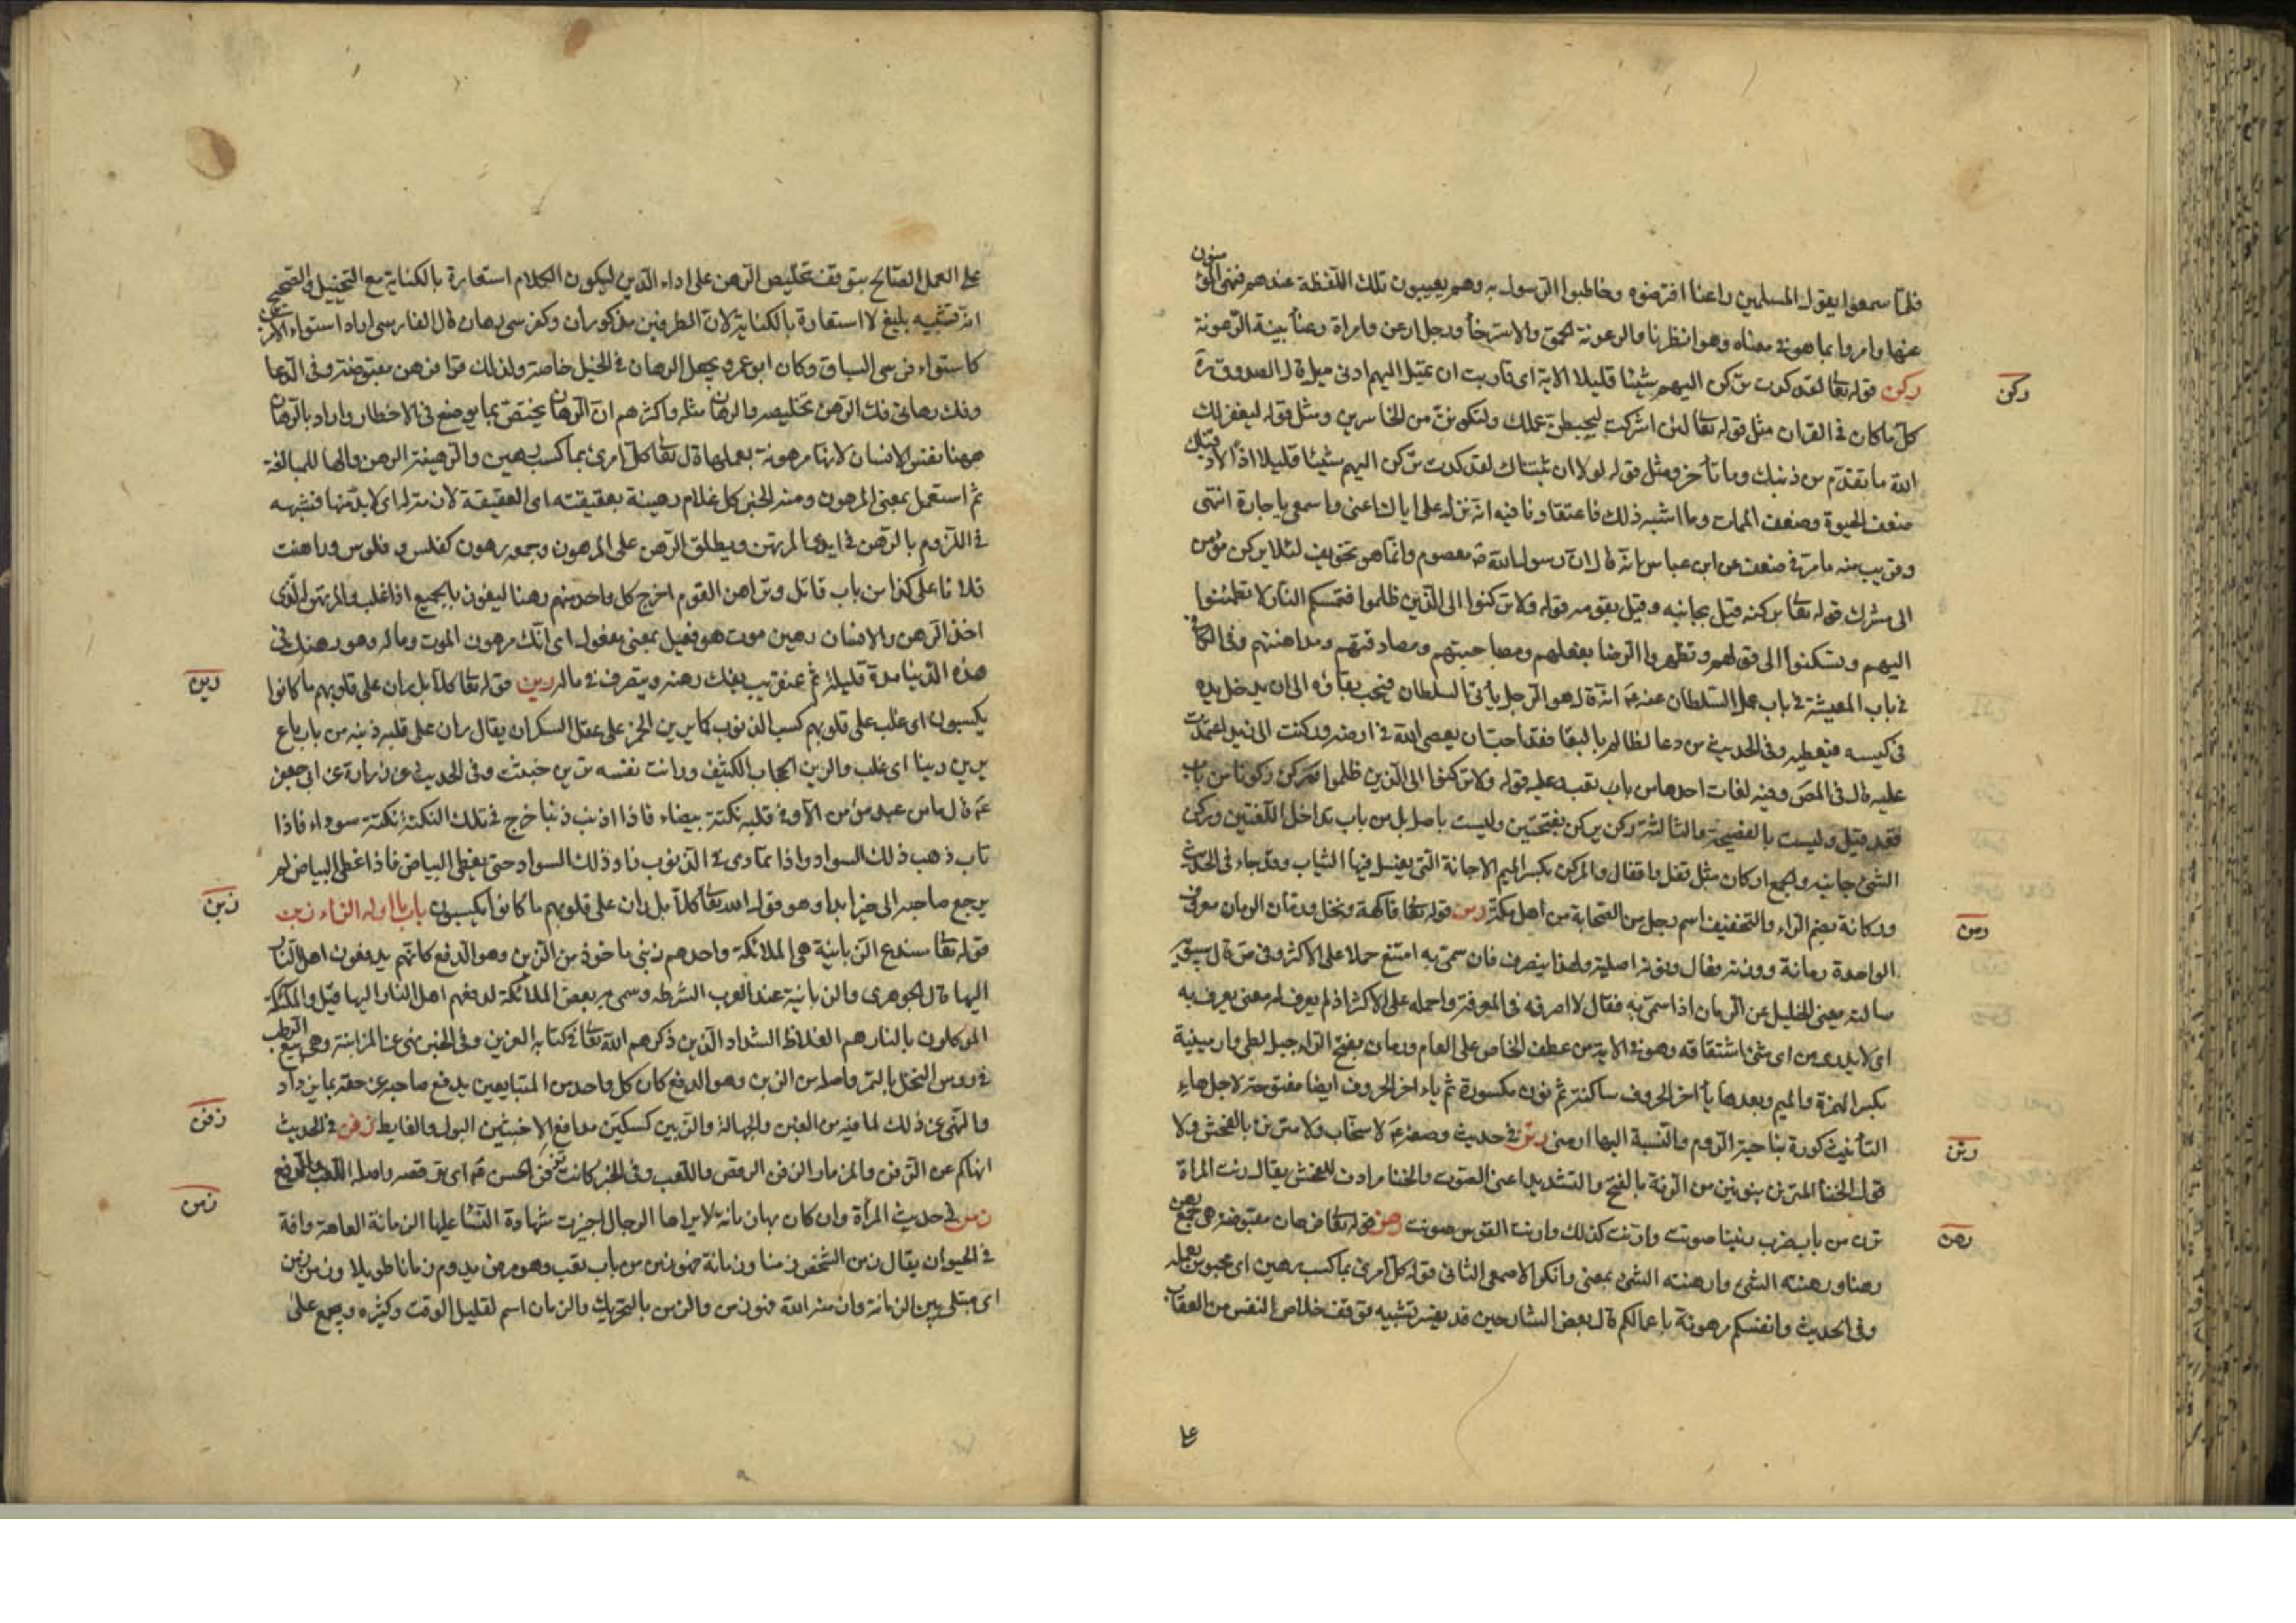 فلما سمعوا بقول المسلمين راعنا افترضوه وخاطبوا الرسول به وهم يعيبون تلك اللفظة عندهم فنهى المؤمنون
عنها وامروا بما هو في معناه وهو انظرنا والرعونة الحمق والاسترخاء ورجل ارعن وامراة رعنا بينة الرعونة
ركن
ركن قوله تعا لقد كدت تركن اليهم شيئا قليلا الاية اى قاربت ان تميل اليهم ادنى ميل قال الصدوق ره
كل ما كان في القران مثل قوله تعا لئن اشركت ليحبطن عملك ولتكونن من الخاسرين ومثل قوله ليغفر لك
الله ما تقدم من ذنبك وما تأخر ومثل قوله لولا ان ثبتناك لقد كدت تركن اليهم شيئا قليلا اذا لاذقناك
ضعف الحيوة وضعف الممات وما اشبه ذلك فاعتقادنا فيه انه نزل على اياك اعنى واسمعى يا جارة انتهى
وقريب منه ما مر في ضعف عن ابن عباس انه قال ان رسول الله ص معصوم وانما هو تخويف لئلا يركن مؤمن
الى مشرك قوله تعا بركنه قيل بجانبه وقيل بقومه قوله ولا تركنوا الى الذين ظلموا فتمسكم النار لا تطمئنوا
اليهم وتسكنوا الى قولهم وتظهروا الرضا بفعلهم ومصاحبتهم ومصادقتهم ومداهنتهم وفي الكافي
في باب المعيشة في باب عمل السلطان عنه ع انه قال هو الرجل يأتى السلطان فيحب بقاؤه الى ان يدخل يده
في كيسه فيعطيه وفي الحديث من دعا لظالم بالبقا فقد احب ان يعصى الله في ارضه وركنت الى زيد اعتمدت
عليه قال في المص وفيه لغات احدها من باب تعب وعليه قوله ولا تركنوا الى الذين ظلموا وركن ركونا من باب
قعد قيل وليست بالفصيحة والثالثة ركن يركن بفتحتين وليست باصل بل من باب تداخل اللغتين وركن
الشئ جانبه والجمع اركان مثل قفل واقفال والمركن بكسر الميم الاجانة التى يغسل فيها الثياب وقد جاء في الحديث
رمن
وركانة بضم الراء والتخفيف اسم رجل من الصحابة من اهل مكة رمن قوله تعا فاكهة ونخل ورمان الرمان معروف
الواحدة رمانة ووزنه فعال ونونه اصلية ولهذا ينصرف فان سمى به امتنع حملا على الاكثر وفي ص قال سيبويه
سالته يعنى الخليل عن الرمان اذا سمى به فقال لا اصرفه في المعرفة واحمله على الاكثر اذ لم يعرف له معنى يعرف به
اى لا يدرى من اى شئ اشتقاقه وهو في الاية من عطف الخاص على العام ورمان بفتح الراء جبل لطى وارمينية
بكسر الهمزة والميم وبعدها يأ اخر الحروف ساكنة ثم نون مكسورة ثم ياء اخر الحروف ايضا مفتوحة لاجل هاء
رنن
التأنيث كورة بناحية الروم والنسبة اليها ارمنى رنن في حديث وصفه ع لا سخاب ولا مترنن بالفحش ولا
قول الخنا المترنن بنونين من الرنة بالفتح والتشديد اعنى الصوت والخنا مرادف للفحش يقال رنت المراة
رهن
ترن من باب ضرب رنينا صوتت وارنت كذلك وارنت القوس صوتت رهن قوله تعا فرهان مقبوضة هى جمع رهن
رهنا ورهنته الشئ وارهنته الشئ بمعنى وانكر الاصمعى الثانى قوله كل امرئ بما كسب رهين اى محبوس بعمله
وفي الحديث وانفسكم مرهونة باعمالكم قال بعض الشارحين قد يفسر تشبيه توقف خلاص النفس من العقاب
على
على العمل الصالح بتوقف تخليص الرهن على اداء الدين ليكون الكلام استعارة بالكناية مع التخييل والصحيح
انه تشبيه بليغ لا استعارة بالكناية لان الطرفين مذكوران وكفرسى رهان قال الفارسى اراد استواء الامرين
كاستواء فرسى السباق وكان ابو عمرو يجعل الرهان في الخيل خاصة ولذلك قرا فرهن مقبوضة وفي الدعا
وفك رهانى فك الرهن تخليصه والرهان مثله واكثرهم ان الرهان يختص بما يوضع في الاخطار واراد بالرهان
ههنا نفس الانسان لانها مرهونة بعملها قال تعا كل امرئ بما كسب رهين والرهينة الرهن والها للمبالغة
ثم استعمل بمعنى المرهون ومنه الخبر كل غلام رهينة بعقيقته اى العقيقة لازمة له اى لا بد منها فشبهه
في اللزوم بالرهن في ايدى المرتهن ويطلق الرهن على المرهون وجمعه رهون كفلس وفلوس وراهنت
فلانا على كذا من باب قاتل وتراهن القوم اخرج كل واحد منهم رهنا ليفوز بالجميع اذا غلب والمرتهن الذى
اخذ الرهن والانسان رهين موت هو فعيل بمعنى مفعول اى انك مرهون الموت وماله وهو رهنك في
رين
هذه الدنيا مدة قليلة ثم عنقريب يفك رهنه ويتصرف في ماله رين قوله تعا كلا بل ران على قلوبهم ما كانوا
يكسبون اى غلب على قلوبهم كسب الذنوب كما يرين الخمر على عقل السكران يقال ران على قلبه ذنبه من باب باع
يرين رينا اى غلب والرين الحجاب الكثيف ورانت نفسه ترين خبثت وفي الحديث عن زرارة عن ابى جعفر
ع قال ما من عبد مؤمن الا وفي قلبه نكتة بيضاء فاذا اذنب ذنبا خرج في تلك النكتة نكتة سوداء فاذا
تاب ذهب ذلك السواد واذا تمادى في الذنوب زاد ذلك السواد حتى يغطى البياض فاذا غطى البياض لم
زبن
يرجع صاحبه الى خير ابدا وهو قول الله تعا كلا بل ران على قلوبهم ما كانوا يكسبون باب ما اوله الزاء زبن
قوله تعا سندع الزبانية هى الملائكة واحدهم زبنى ماخوذ من الزبن وهو الدفع كانهم يدفعون اهل النار
اليها قال الجوهرى والزبانية عند العرب الشرطه وسمى به بعض الملائكة لدفعهم اهل النار اليها قيل والملائكة
الموكلون بالنار هم الغلاظ الشداد الذين ذكرهم الله تعا في كتابه العزيز وفي الخبر نهى عن المزابنة وهى بيع الرطب
في رؤس النخل بالتمر واصله من الزبن وهو الدفع كان كل واحد من المتبايعين يدفع صاحبه عن حقه بما يزداد
زفن
والنهى عن ذلك لما فيه من الغبن والجهالة والزبين كسكين مدافع الاخبثين البول والغايط زفن في الحديث
انهاكم عن الزفن والمزمار الزفن الرقص واللعب وفي الخبر كانت تزفن للحسن ع اى ترقصه واصله اللعب والدفع
زمن
زمن في حديث المرأة وان كان بها زمانة لا يراها الرجال اجيزت شهادة النسأ عليها الزمانة العاهة وافة
في الحيوان يقال زمن الشخص زمنا وزمانة فهو زمن من باب تعب وهو مرض يدوم زمانا طويلا وزمن زمن
اى مبتلى بين الزمانة وازمنه الله فهو زمن والزمن بالتحريك والزمان اسم لقليل الوقت وكثيره ويجمع على